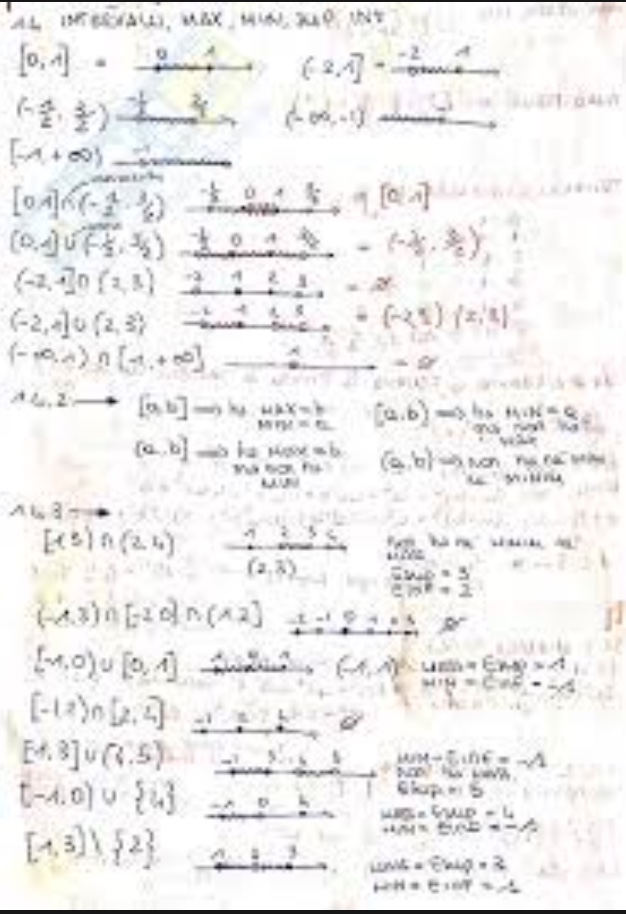 14 INTERVALLI, MAX, MIN, SUP, INF
[0,1] = 0 1 (-2,1] = -2 1
(-1/2, 3/2) -1/2 3/2 (-∞,-1) -1
[-1,+∞) -1
[0,1]∩(-1/2, 3/2) -1/2 0 1 3/2 = [0,1]
[0,1]∪(-1/2, 3/2) -1/2 0 1 3/2 = (-1/2, 3/2)
(-2,1]∩(2,3) -2 1 2 3 = ∅
(-2,1]∪(2,3) -2 1 2 3 =
(-∞,1)∩[1,+∞] 1 = ∅
14.2 → [a,b] ⇒ ha MAX=b MIN=a [a,b) ⇒ ha MIN=a ma non ha MAX
(a,b] ⇒ ha MAX=b ma non ha MIN (a,b) ⇒ non ha né MAX né MIN
14.3 →
[1,3)∩(2,4) 1 2 3 4 (2,3) non ha né né
ESUP = 3
EINF = 2
(-1,3)∩[-2,0]∩(1,2] -2 -1 0 1 2 3 ∅
[-1,0)∪[0,1] -1 0 1 MAX=ESUP=1
MIN=EINF=-1
∩[2,4] -1 2 4 ∅
[-1,3]∪(4,5) -1 3 4 5 MIN=EINF=-1
non ha MAX
ESUP=5
[-1,0)∪{4} -1 0 4 MAX=ESUP=4
MIN=EINF=-1
[1,3)\{2} 1 2 3 MAX=ESUP=3
MIN=EINF=1